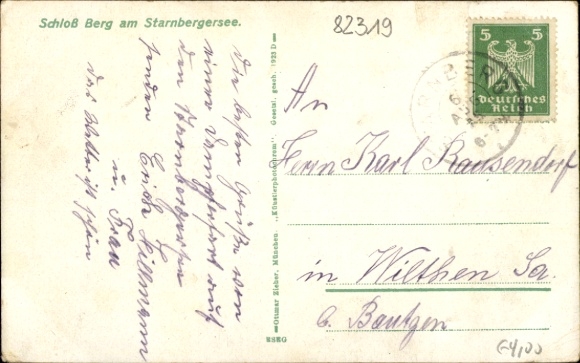 Schloß Berg am Starnbergersee.
82319
Die besten Grüße von
einer Dampffahrt auf
dem Starnbergersee
senden Erich Hillmann
u. Frau
das Wetter ist schön
Ottmar Zieher, München. „Künstlerphotochrom" Gesetzl. gesch. 1923 D
5 5
Deutsches
Reich
STARNBERG
An
Herrn Karl Rausendorf
in Wilthen Sa.
b. Bautzen